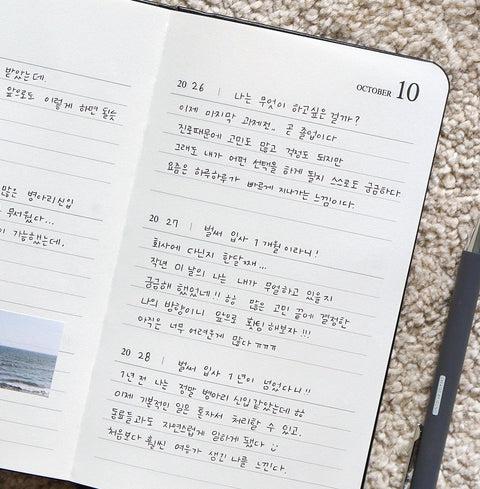 받았는데.
앞으로도 이렇게 하면 될듯
많은 병아리신입
무서웠다...
가능했는데.
OCTOBER 10
20 26 | 나는 무엇이 하고싶은 걸까?
이제 마지막 과제전.. 곧 졸업이다
진로때문에 고민도 많고 걱정도 되지만
그래도 내가 어떤 선택을 하게 될지 스스로도 궁금하다
요즘은 하루하루가 빠르게 지나가는 느낌이다.
20 27 | 벌써 입사 1개월이라니!
회사에 다닌지 한달째...
작년 이 날의 나는 내가 무얼하고 있을지
궁금해 했었네!! ㅎㅎ 많은 고민 끝에 결정한
나의 방향이니 앞으로 홧팅 해보자!!!
아직은 너무 어려운게 많다 ㅠㅠㅠ
20 28 | 벌써 입사 1년이 넘었다니!!
1년 전 나는 정말 병아리 신입 같았는데 ㅎㅎ
이제 기본적인 일은 혼자서 처리할 수 있고.
동료들과도 자연스럽게 일하게 됐다
처음보다 훨씬 여유가 생긴 나를 느낀다.